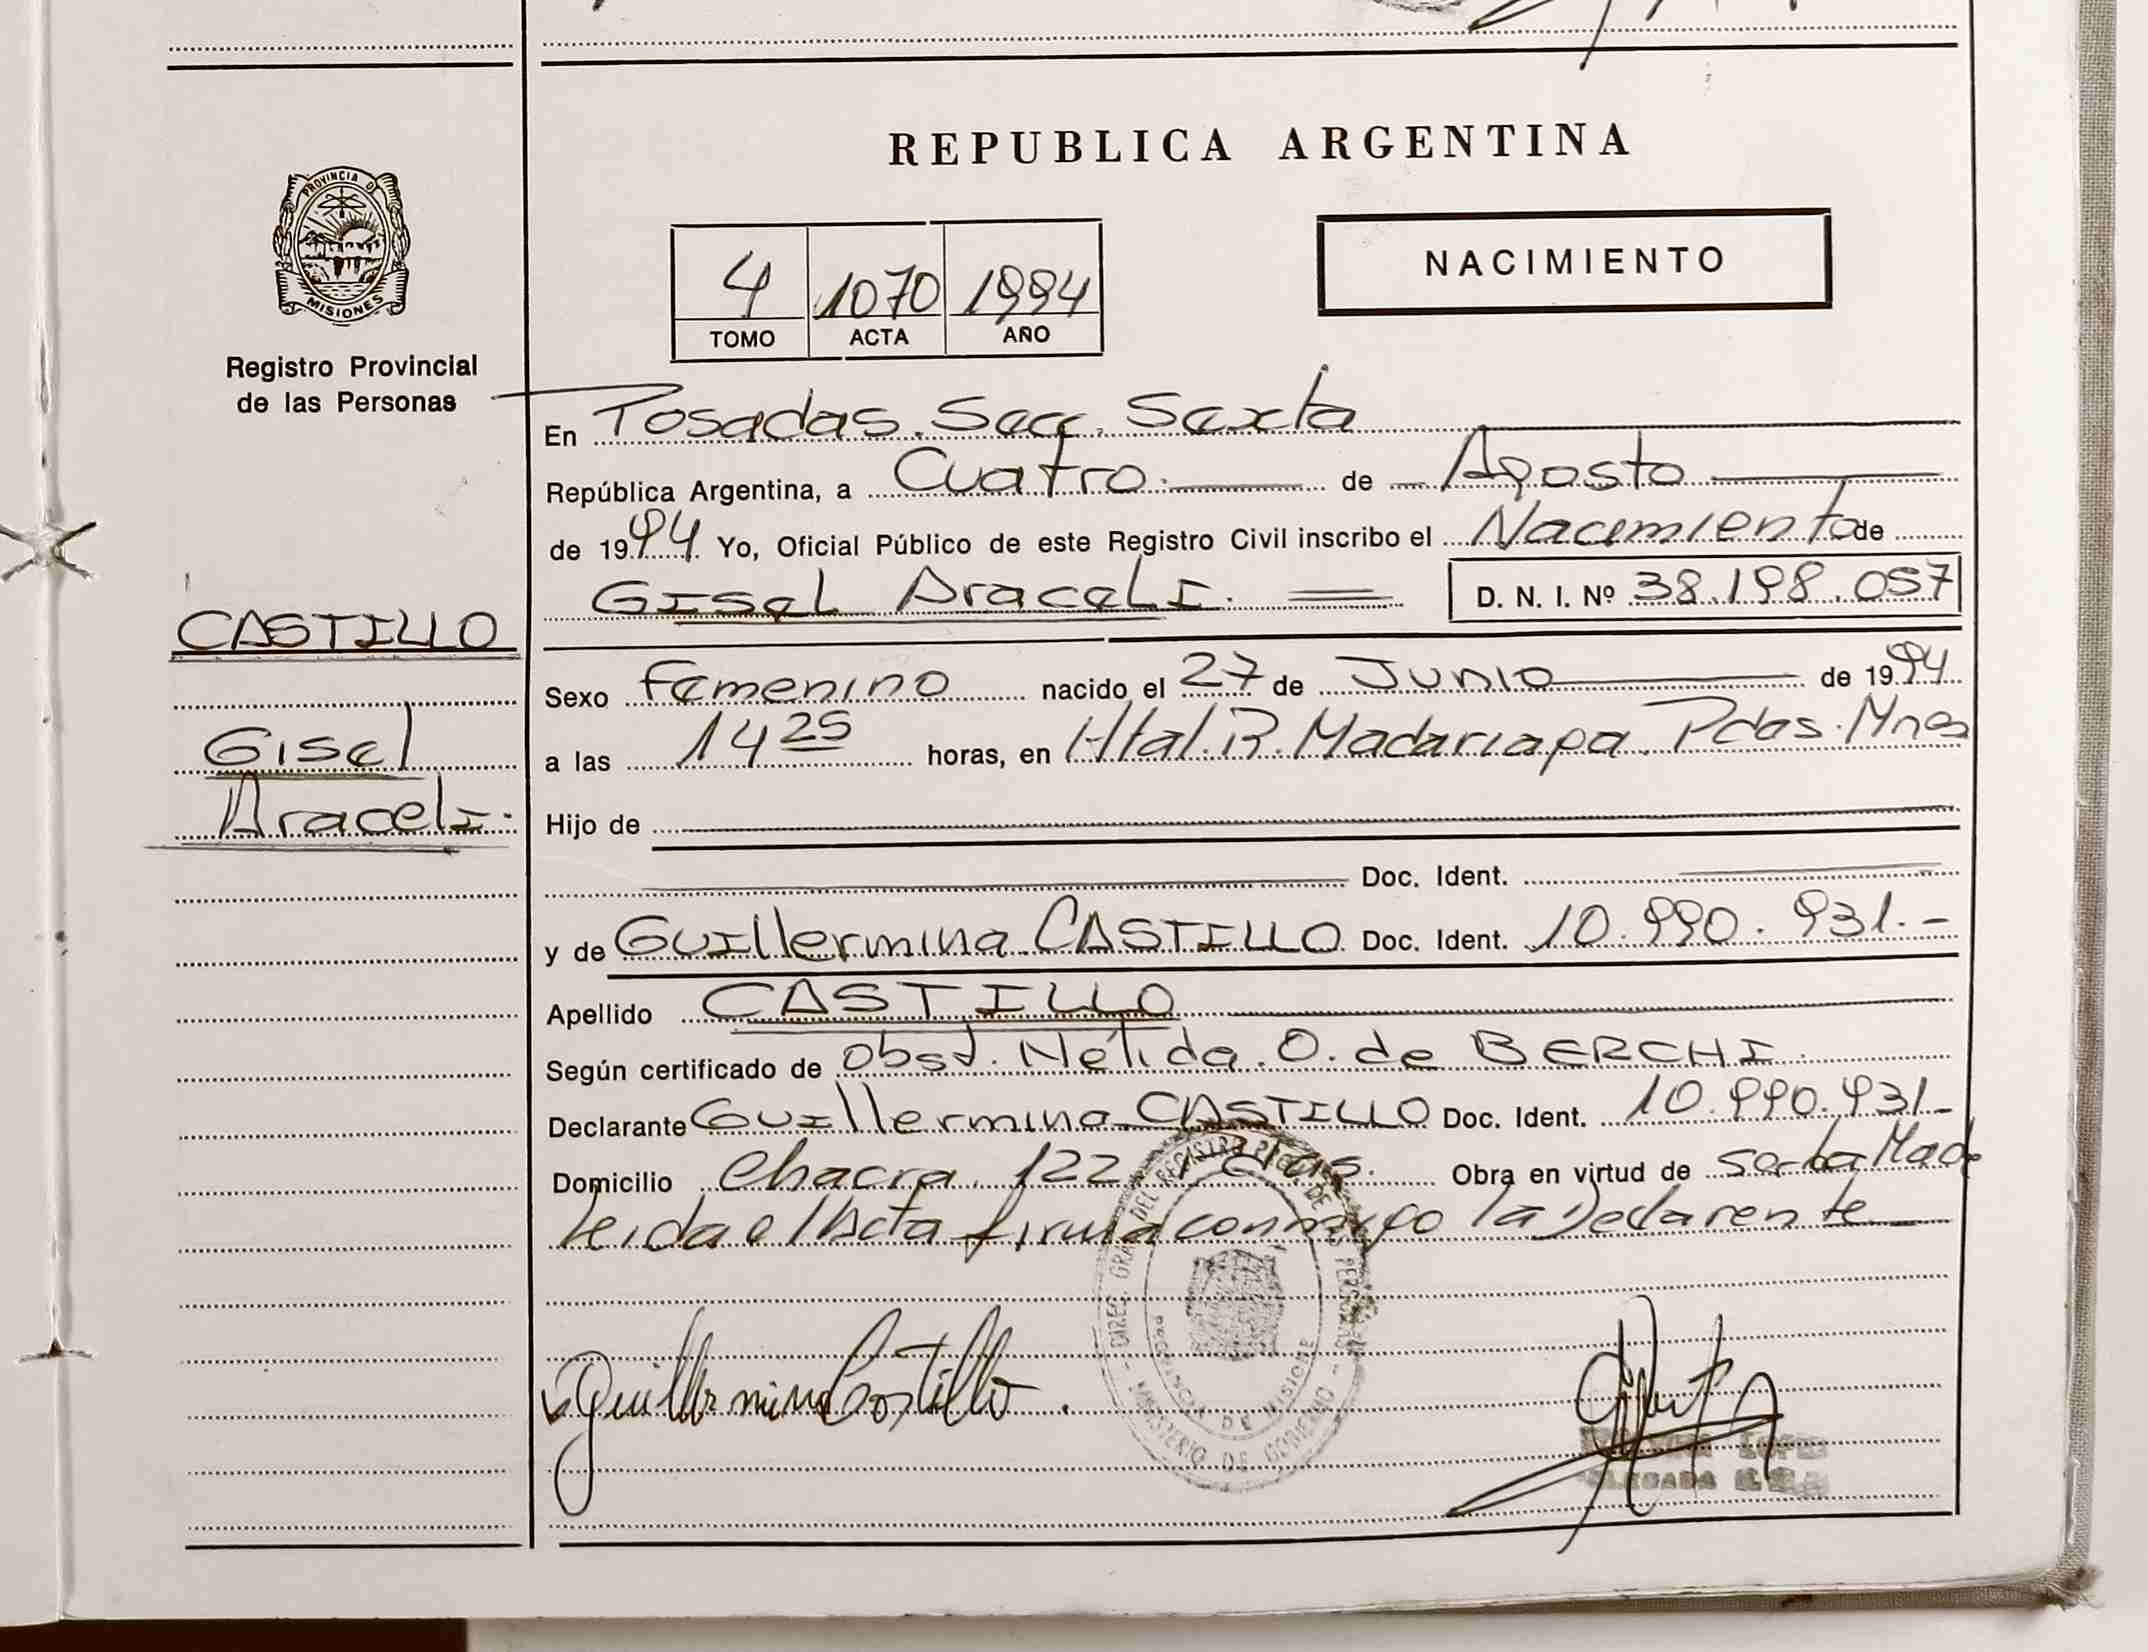 PROVINCIA DE
MISIONES
Registro Provincial
de las Personas
CASTILLO
Gisel
Araceli.
REPUBLICA ARGENTINA
4 1070 1994
TOMO ACTA AÑO
NACIMIENTO
En Posadas. Secc. Sexta
República Argentina, a Cuatro. de Agosto
de 1994 Yo, Oficial Público de este Registro Civil inscribo el Nacimiento de
Gisel Araceli. D. N. I. Nº 38.198.057
Sexo Femenino nacido el 27 de Junio de 1994
a las 14 25 horas, en Htal. R. Madariaga. Pdas. Mnes
Hijo de
Doc. Ident.
y de Guillermina CASTILLO Doc. Ident. 10.990.931.-
Apellido CASTILLO
Según certificado de Obst. Nélida. O. de BERCHI
Declarante Guillermina CASTILLO Doc. Ident. 10.990.931-
Domicilio Chacra. 122 Pdas. Obra en virtud de ser la Madre
leida el Acta firma conmigo la Declarente
DIREC. GRAL. DEL REGISTRO PROV. DE LAS PERSONAS
PROVINCIA DE MISIONES
- MINISTERIO DE GOBIERNO -
Guillermina Castillo.